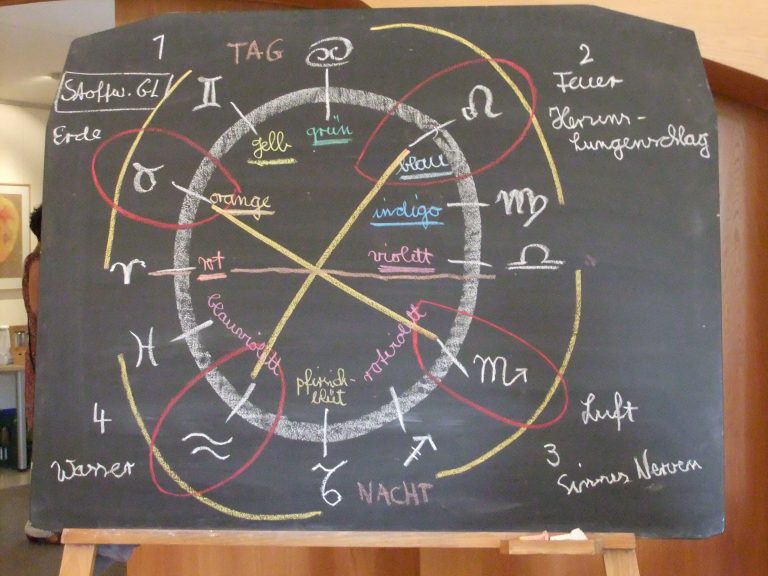 1
TAG
2
Stoffw. Gl
Feuer
Erde
Lungenschlag
gelb
grün
blau
orange
indigo
rot
violett
blauviolett
pfirsich-
blüt
rotviolett
4
Luft
Wasser
3
Sinnes Nerven
NACHT